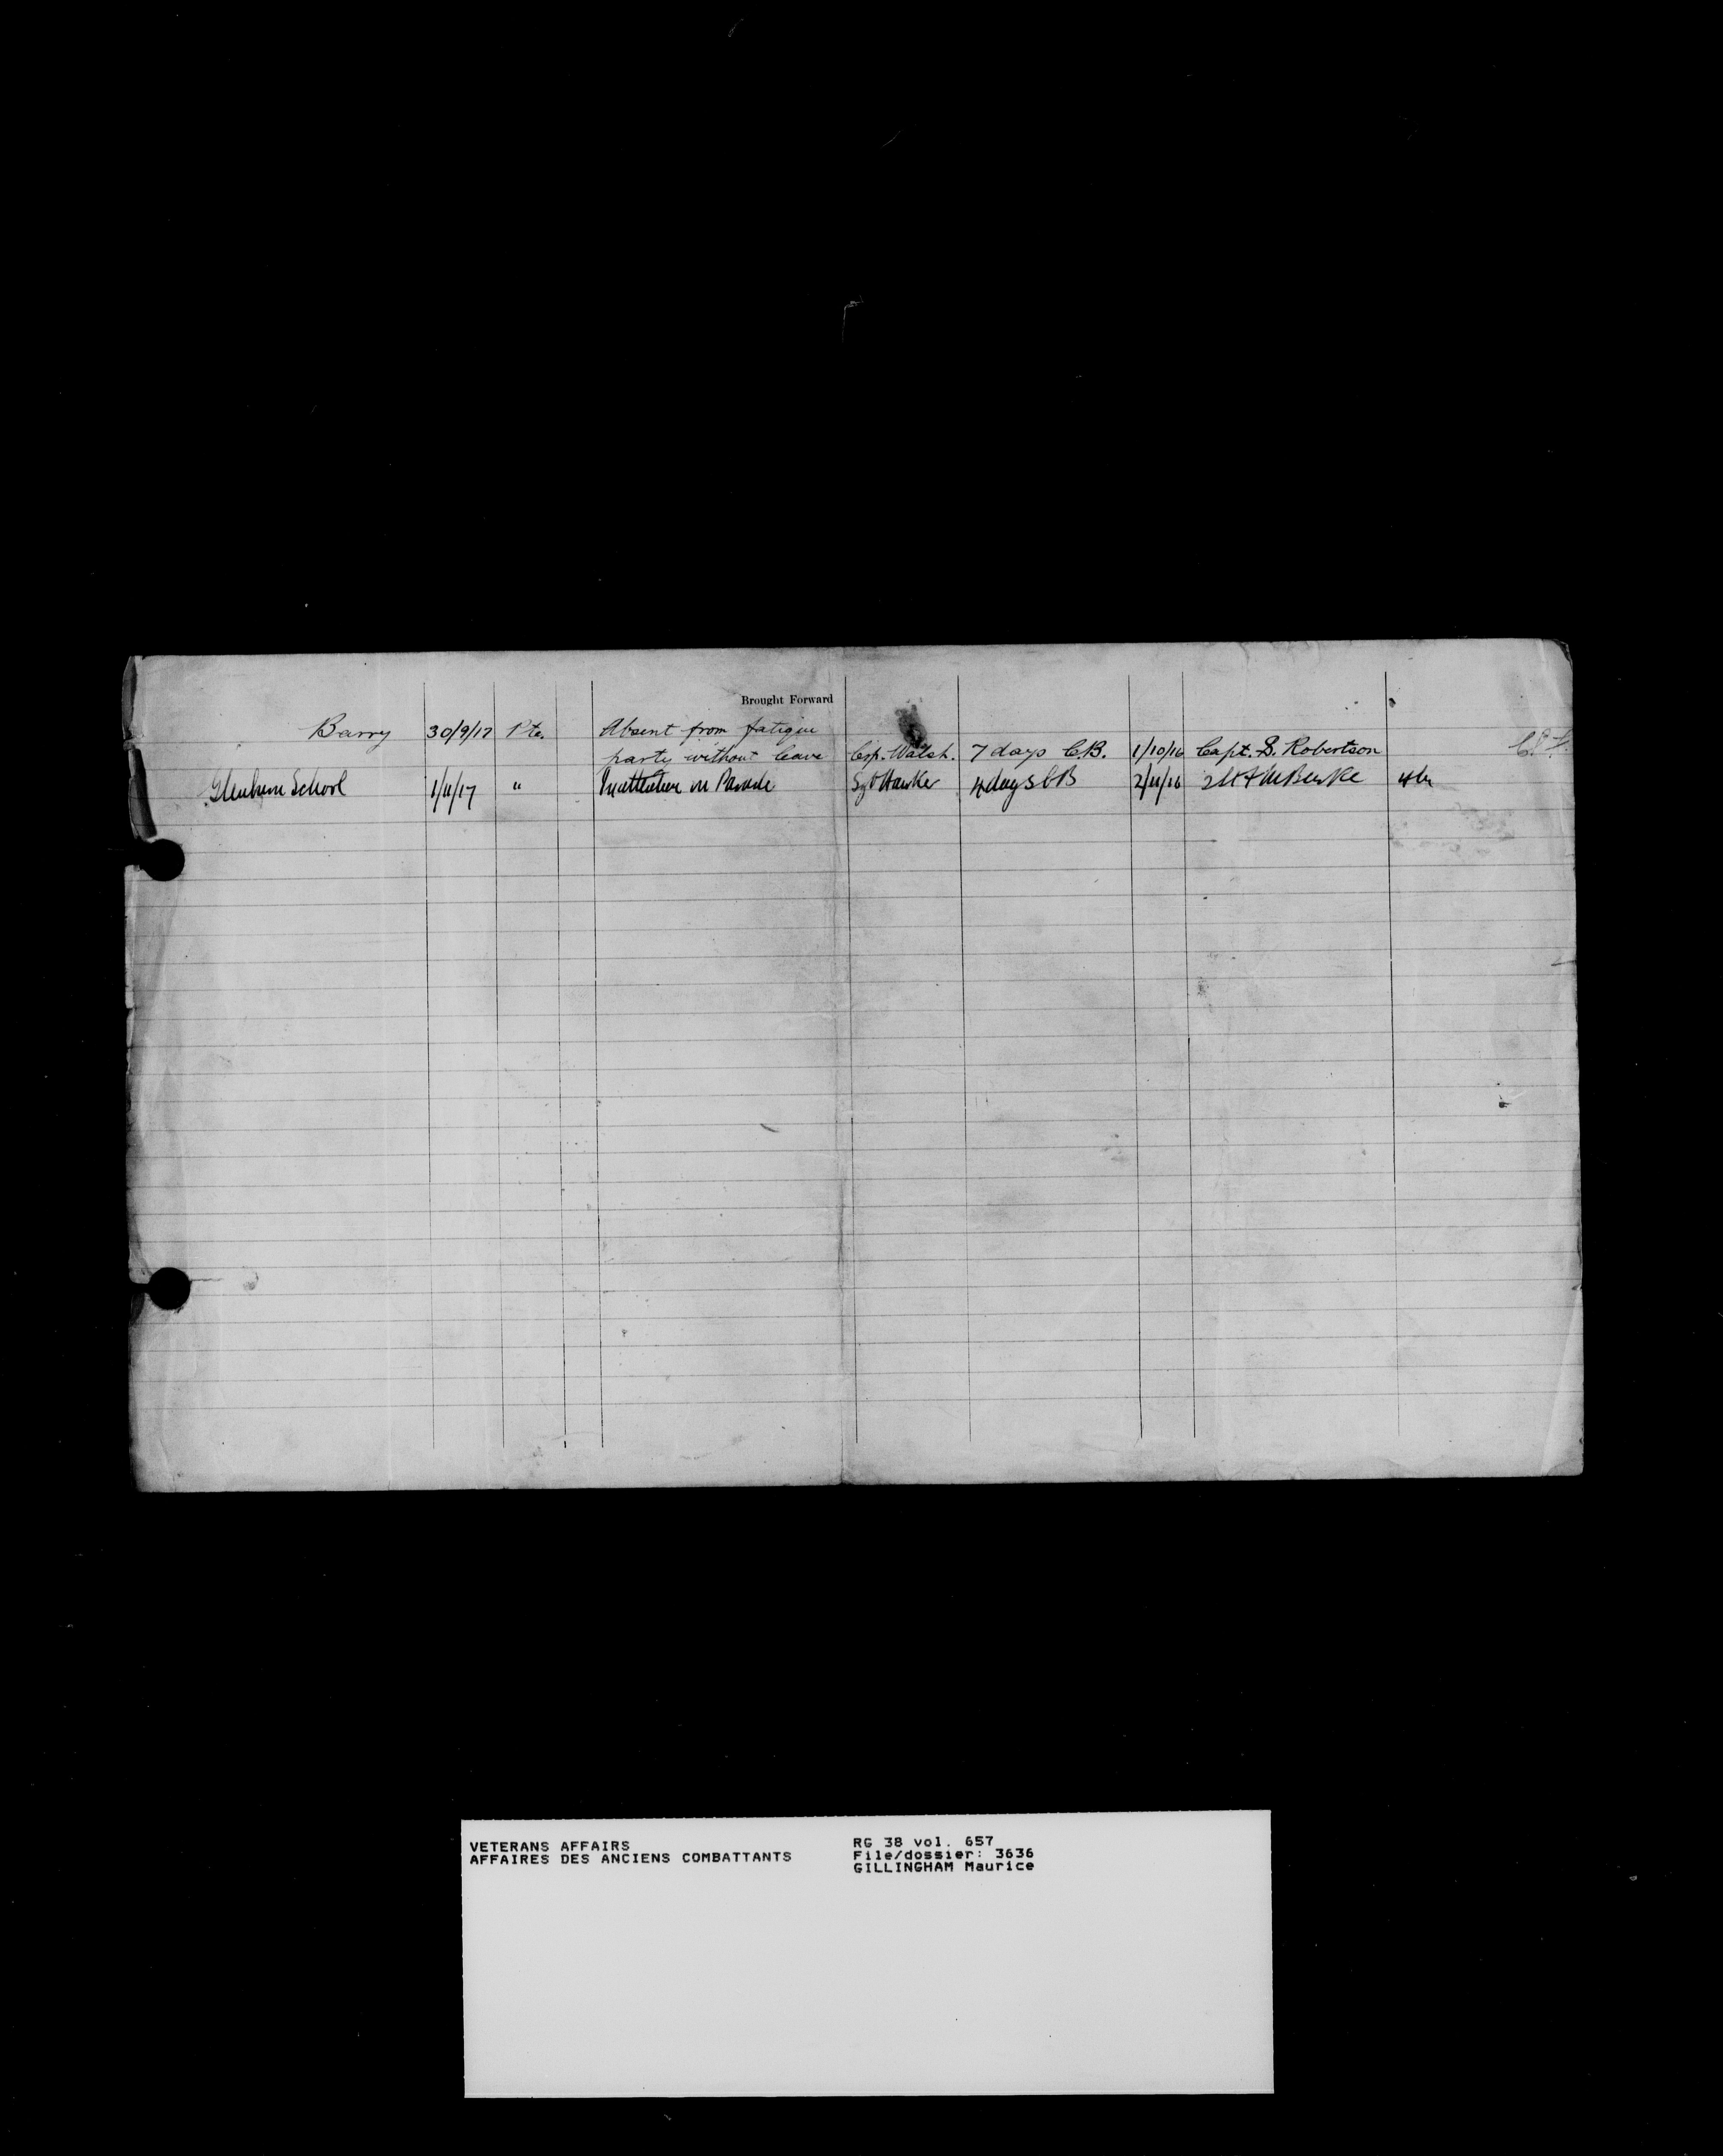 Brought Forward
Barry 30/9/17 Pte. Absent from fatigue
party without leave Csp. Walsh. 7 days C.B. 1/10/16 Capt. S. Robertson
School 1/11/17 " Inattentive on Parade Sgt Hawker 4 days CB 2/11/16
VETERANS AFFAIRS
AFFAIRES DES ANCIENS COMBATTANTS
RG 38 vol. 657
File/dossier: 3636
GILLINGHAM Maurice